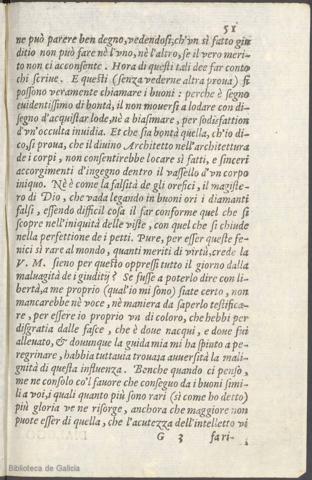 51
ne può parere ben degno, vedendosi, ch'vn sì fatto giu
ditio non può fare nè l'vno, nè l'altro, se il vero meri-
to non ci acconsente. Hora di questi tali dee far conto
chi scriue. E questi (senza vederne altra proua) si
possono veramente chiamare i buoni: perche è segno
euidentissimo di bontà, il non mouersi a lodare con di-
segno d'acquistar lode, nè a biasimare, per sodisfattion
d'vn'occulta inuidia. Et che sia bontà quella, ch'io di-
co, si proua, che il diuino Architetto nell'architettura
de i corpi, non consentirebbe locare sì fatti, e sinceri
accorgimenti d'ingegno dentro il vasello d'vn corpo
iniquo. Nè è come la falsità de gli orefici, il magiste-
ro di Dio, che vada legando in buoni ori i diamanti
falsi, essendo difficil cosa il far conforme quel che si
scopre nell'iniquità delle viste, con quel che si chiude
nella perfettione de i petti. Pure, per esser queste fe-
nici sì rare al mondo, quanti meriti di virtù, crede la
V. M. sieno per questo oppressi tutto il giorno dalla
maluagità de i giuditij? Se fusse a poterlo dire con li-
bertà, a me proprio (qual'io mi sono) siate certo, non
mancarebbe nè voce, nè maniera da saperlo testifica-
re, per essere io proprio vn di coloro, che hebbi per
disgratia dalle fasce, che è doue nacqui, e doue fui
alleuato, & dounque la guida mia mi ha spinto a pe-
regrinare, habbia tuttauia trouata auuersità la mali-
gnità di questa influenza. Benche quando ci penso,
me ne consolo co'l fauore che conseguo da i buoni simi-
li a voi, i quali quanto più sono rari (sì come ho detto)
più gloria ve ne risorge, anchora che maggiore non
puote esser di quella, che l'acutezza dell'intelletto vi
G 3 fari-
Biblioteca de Galicia